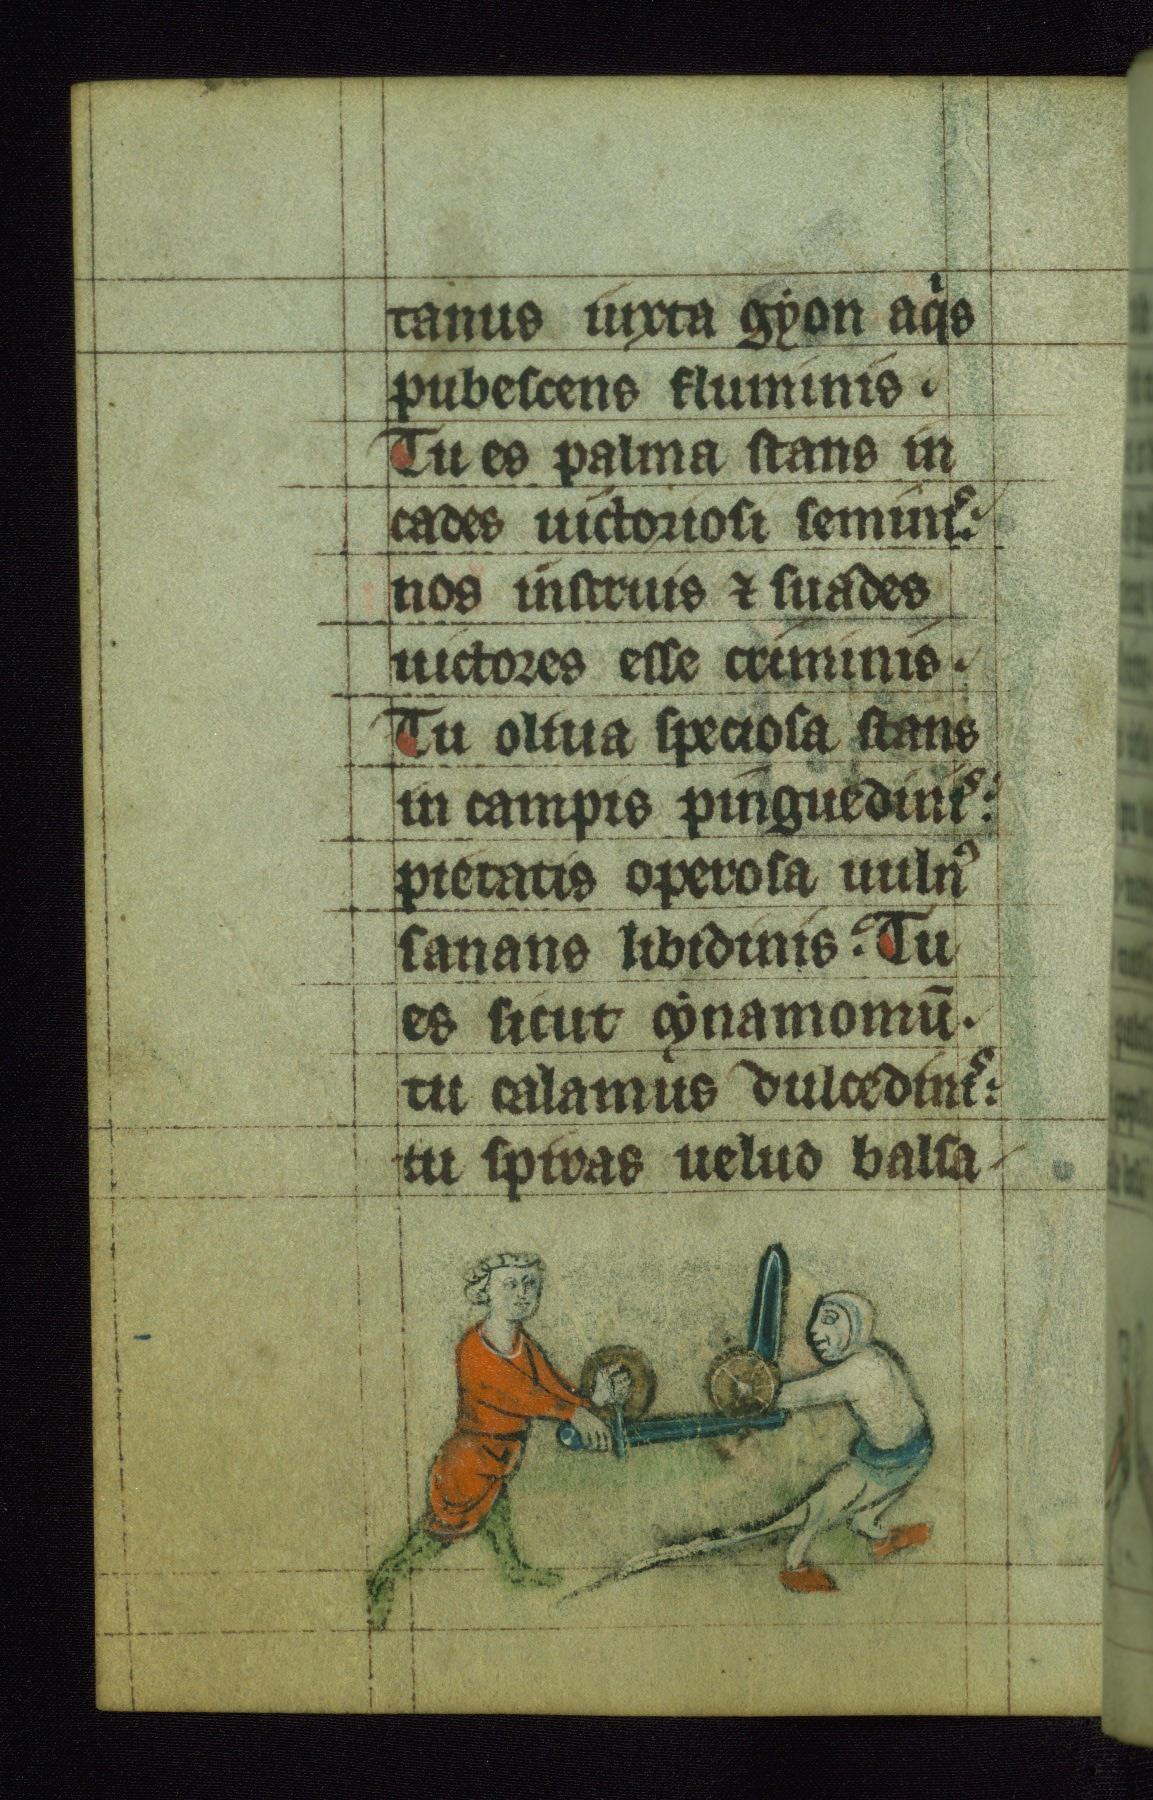 tanus iuxta gyon aqͥs
pubescens fluminis ·
Tu es palma stans in
cades uictoriosi seminiˢ:
nos instruis ⁊ suades
uictores esse criminis ·
Tu oliua speciosa stans
in campis pinguediniˢ:
pietatis operosa uulnꝰ
sanans libidinis: Tu
es sicut cynamomū ·
tu calamus dulcediniˢ:
tu spiras uelud balsa-